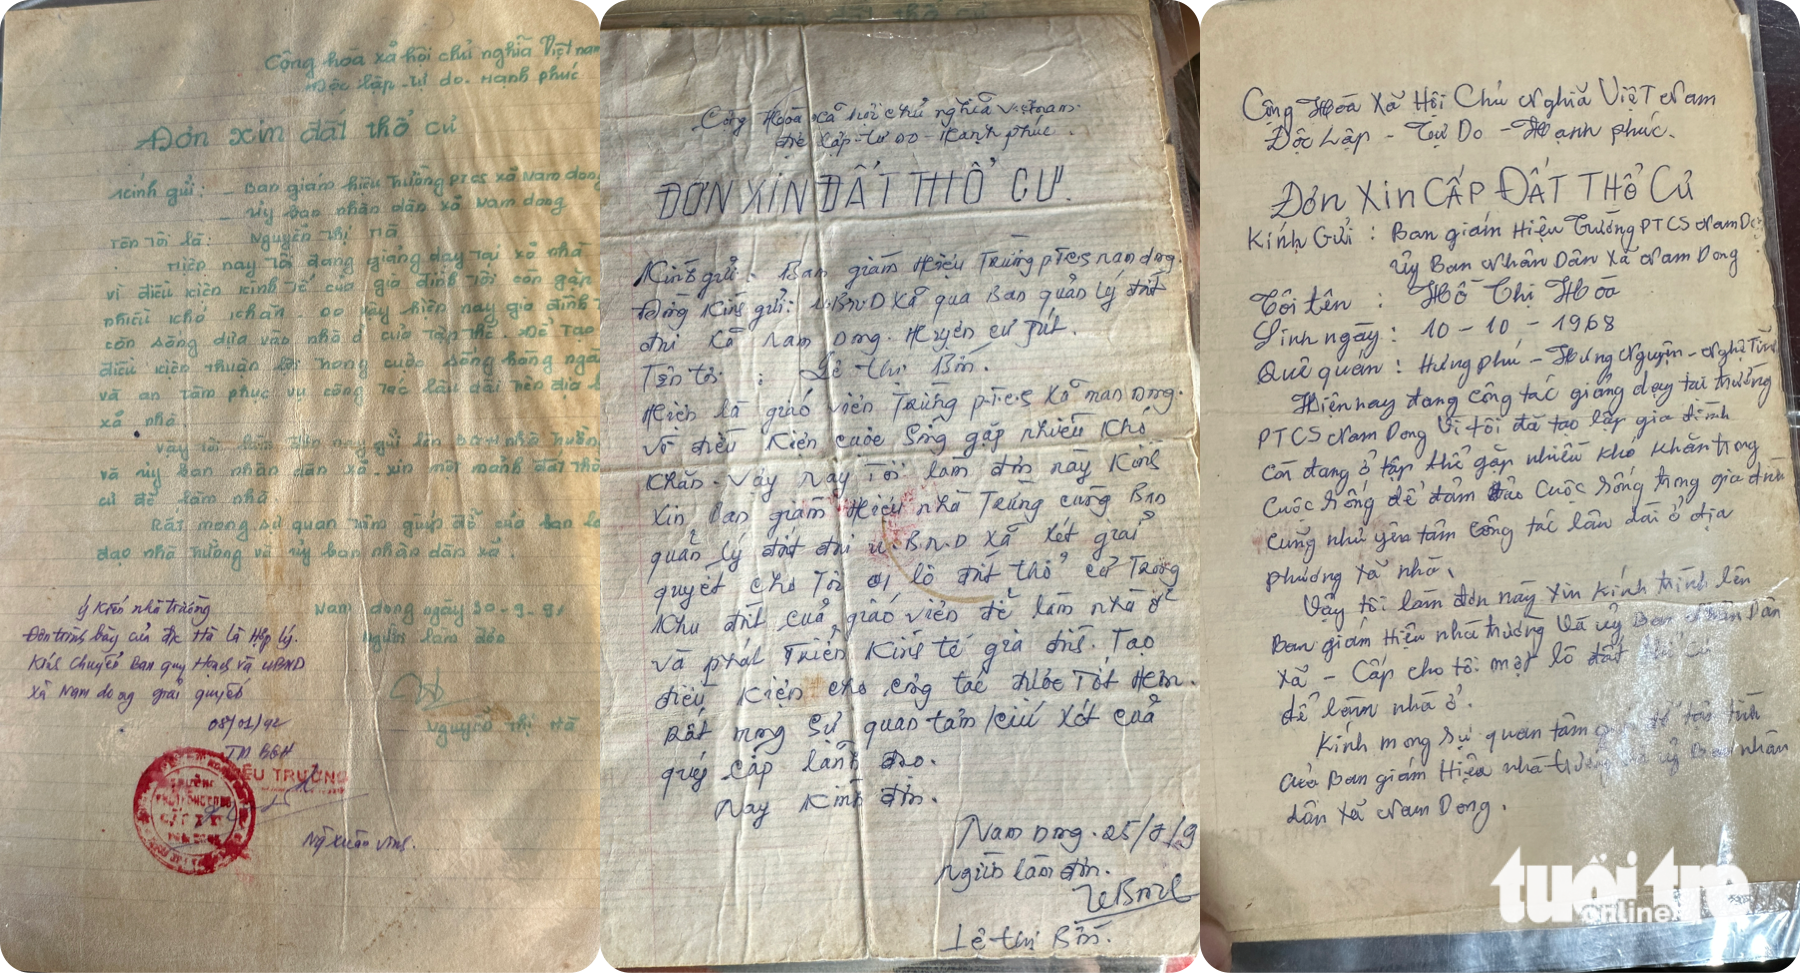 Cộng hòa xã hội chủ nghĩa Việt nam
Độc lập - Tự do. Hạnh phúc
Đơn xin đất thổ cư
Kính gửi: - Ban giám hiệu trường PTCS xã Nam dong
- Ủy ban nhân dân xã Nam dong
Tên tôi là: Nguyễn Thị Hà
Hiện nay tôi đang giảng dạy tại xã nhà
vì điều kiện kinh tế của gia đình tôi còn gặp
nhiều khó khăn. Do vậy hiện nay gia đình
còn sống dựa vào nhà ở của tập thể. Để tạo
điều kiện thuận lợi trong cuộc sống hàng ngày
và an tâm phục vụ công tác lâu dài trên địa
xã nhà.
Vậy tôi làm đơn này gửi lên BGH nhà trường
và ủy ban nhân dân xã xin một mảnh đất thổ
cư để làm nhà.
Rất mong sự quan tâm giúp đỡ của ban
đạo nhà trường và ủy ban nhân dân xã.
Nam dong ngày 30-9-91
Người làm đơn
Nguyễn Thị Hà
Ý Kiến nhà trường
Đơn trình bày của đ/c Hà là Hợp lý.
Kính chuyển Ban quy Hoạch và UBND
xã Nam dong giải quyết
08/01/92
TM BGH
HIỆU TRƯỞNG
TRƯỜNG
Cộng Hòa xã hội chủ nghĩa việt nam
độc lập - tự do - Hạnh phúc.
ĐƠN XIN ĐẤT THỔ CƯ.
Kính gửi: Ban giám Hiệu Trường PTCS nam dong.
Đồng Kính gửi: U.B.N.D Xã qua Ban quản lý đất
đai xã Nam Dong. Huyện cư Jút.
Tên tôi : Lê Thị Bốn.
Hiện là giáo viên Trường P.T.C.S xã nam Dong.
Vì điều kiện cuộc sống gặp nhiều khó
khăn. Vậy nay tôi làm đơn này kính
xin Ban giám Hiệu nhà Trường cùng Ban
quản lý đất đai U.B.N.D xã xét giải
quyết cho tôi 01 lô đất thổ cư trong
khu đất của giáo viên để làm nhà ở
và phát triển kinh tế gia đình. Tạo
điều kiện cho công tác được tốt hơn.
Rất mong sự quan tâm cứu xét của
quý cấp lãnh đạo.
Nay kính đơn.
Nam Dong. 25/8/9
Người làm đơn.
Lê Thị Bốn.
Cộng Hòa Xã Hội Chủ Nghĩa Việt Nam
Độc Lập - Tự Do - Hạnh phúc.
Đơn Xin CẤP ĐẤT THỔ CƯ
Kính Gửi : Ban giám Hiệu Trường PTCS Nam D
Ủy Ban Nhân Dân Xã Nam Dong
Tôi tên : Hồ Thị Hóa
Sinh ngày : 10 - 10 - 1968
Quê quan : Hưng phú - Hưng Nguyên - Nghệ Tĩnh
Hiện nay đang công tác giảng dạy tại trường
PTCS Nam Dong Vì tôi đã tạo lập gia đình
còn đang ở tập thể gặp nhiều khó khăn trong
cuộc sống để đảm bảo cuộc sống trong gia đình
cũng như yên tâm công tác lâu dài ở địa
phương xã nhà.
Vậy tôi làm đơn này xin kính trình lên
Ban giám Hiệu nhà trường Và ủy Ban Nhân Dân
xã - Cấp cho tôi một lô đất thổ cư
để làm nhà ở.
Kính mong sự quan tâm giúp đỡ tận tình
của Ban giám Hiệu nhà trường và ủy Ban nhân
dân xã Nam Dong.
tuổi trẻ
online